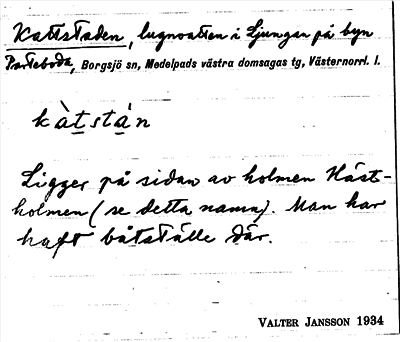 Kattstaden, lugnvatten i Ljungan på byn
Parteboda, Borgsjö sn, Medelpads västra domsagas tg, Västernorrl. l.
kàtstán
Ligger på sidan av holmen Häst-
holmen (se detta namn). Man har
haft båtställe där.
VALTER JANSSON 1934